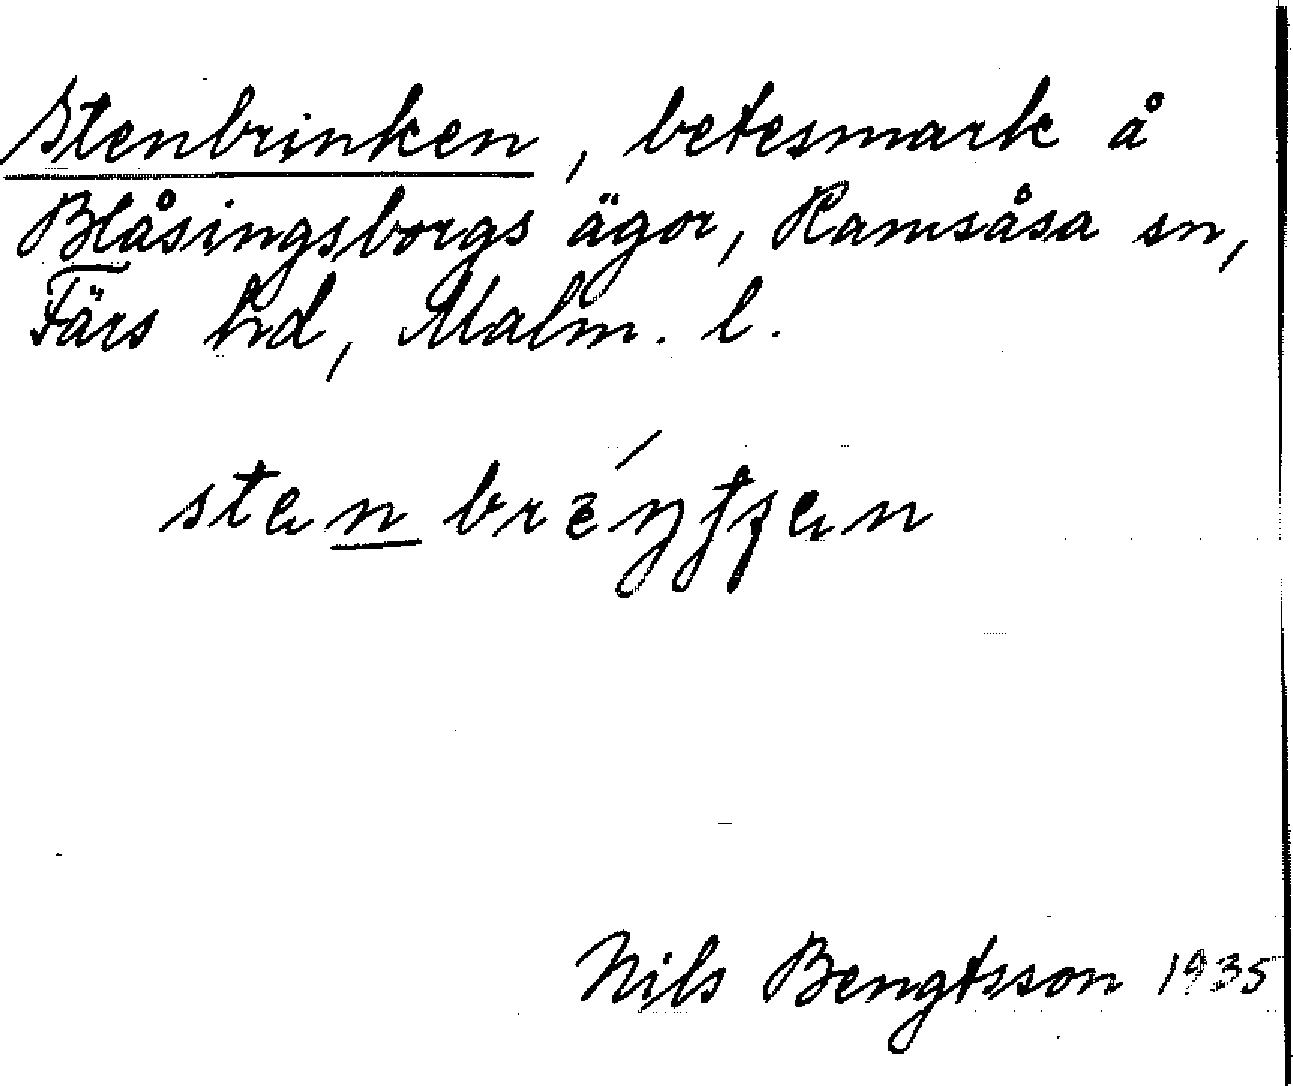 Stenbrinken, betesmark å
Blåsingsborgs ägor, Ramsåsa sn,
Färs hd, Malm. l.
Nils Bengtsson 1935